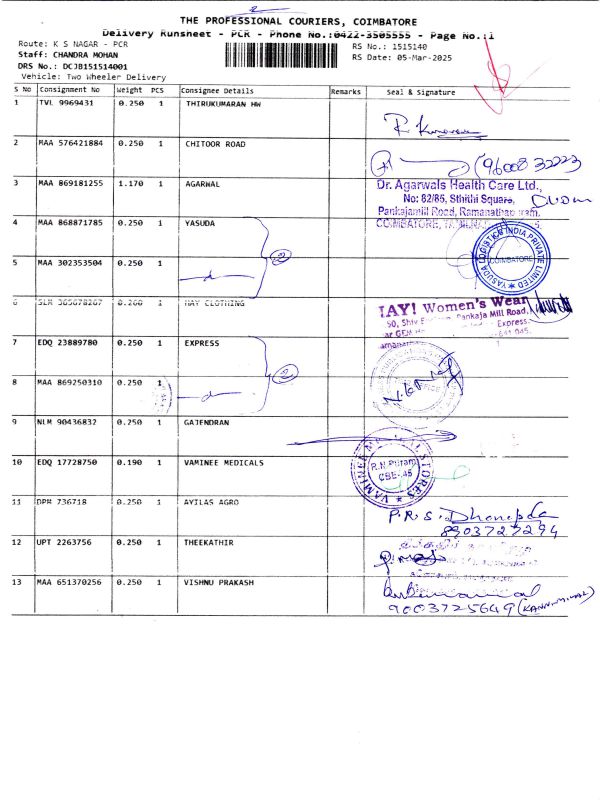 THE PROFESSIONAL COURIERS, COIMBATORE
Delivery Runsheet - PCR - Phone No.:0422-3505555 - Page No.:1
Route: K S NAGAR - PCR
RS No.: 1515140
Staff: CHANDRA MOHAN
RS Date: 05-Mar-2025
DRS No.: DCJB151514001
Vehicle: Two Wheeler Delivery
S No Consignment No Weight PCS Consignee Details Remarks Seal & Signature
1 TVL 9969431 0.250 1 THIRUKUMARAN HW
2 MAA 576421884 0.250 1 CHITOOR ROAD
96008 32223
3 MAA 869181255 1.170 1 AGARWAL
Dr. Agarwals Health Care Ltd.,
No: 82/85, Sthithi Square,
Pankajamill Road, Ramanathapuram,
COIMBATORE,
4 MAA 868871785 0.250 1 YASUDA
YASUDA LOGISTICS INDIA PRIVATE LIMITED
COIMBATORE
5 MAA 302353504 0.250 1
2
6 SLM 0.260 1 HAY CLOTHING
HAY! Women's Wear
Pankaja Mill Road,
7 EDQ 23889780 0.250 1 EXPRESS
8 MAA 869250310 0.250 1
2
9 NLM 90436832 0.250 1 GAJENDRAN
10 EDQ 17728750 0.190 1 VAMINEE MEDICALS
VAMINEE STORES
R.N.Puram
CBE-45
11 DPM 736718 0.250 1 AYILAS AGRO
P.R.S.
8903727294
12 UPT 2263756 0.250 1 THEEKATHIR
13 MAA 651370256 0.250 1 VISHNU PRAKASH
9003725649